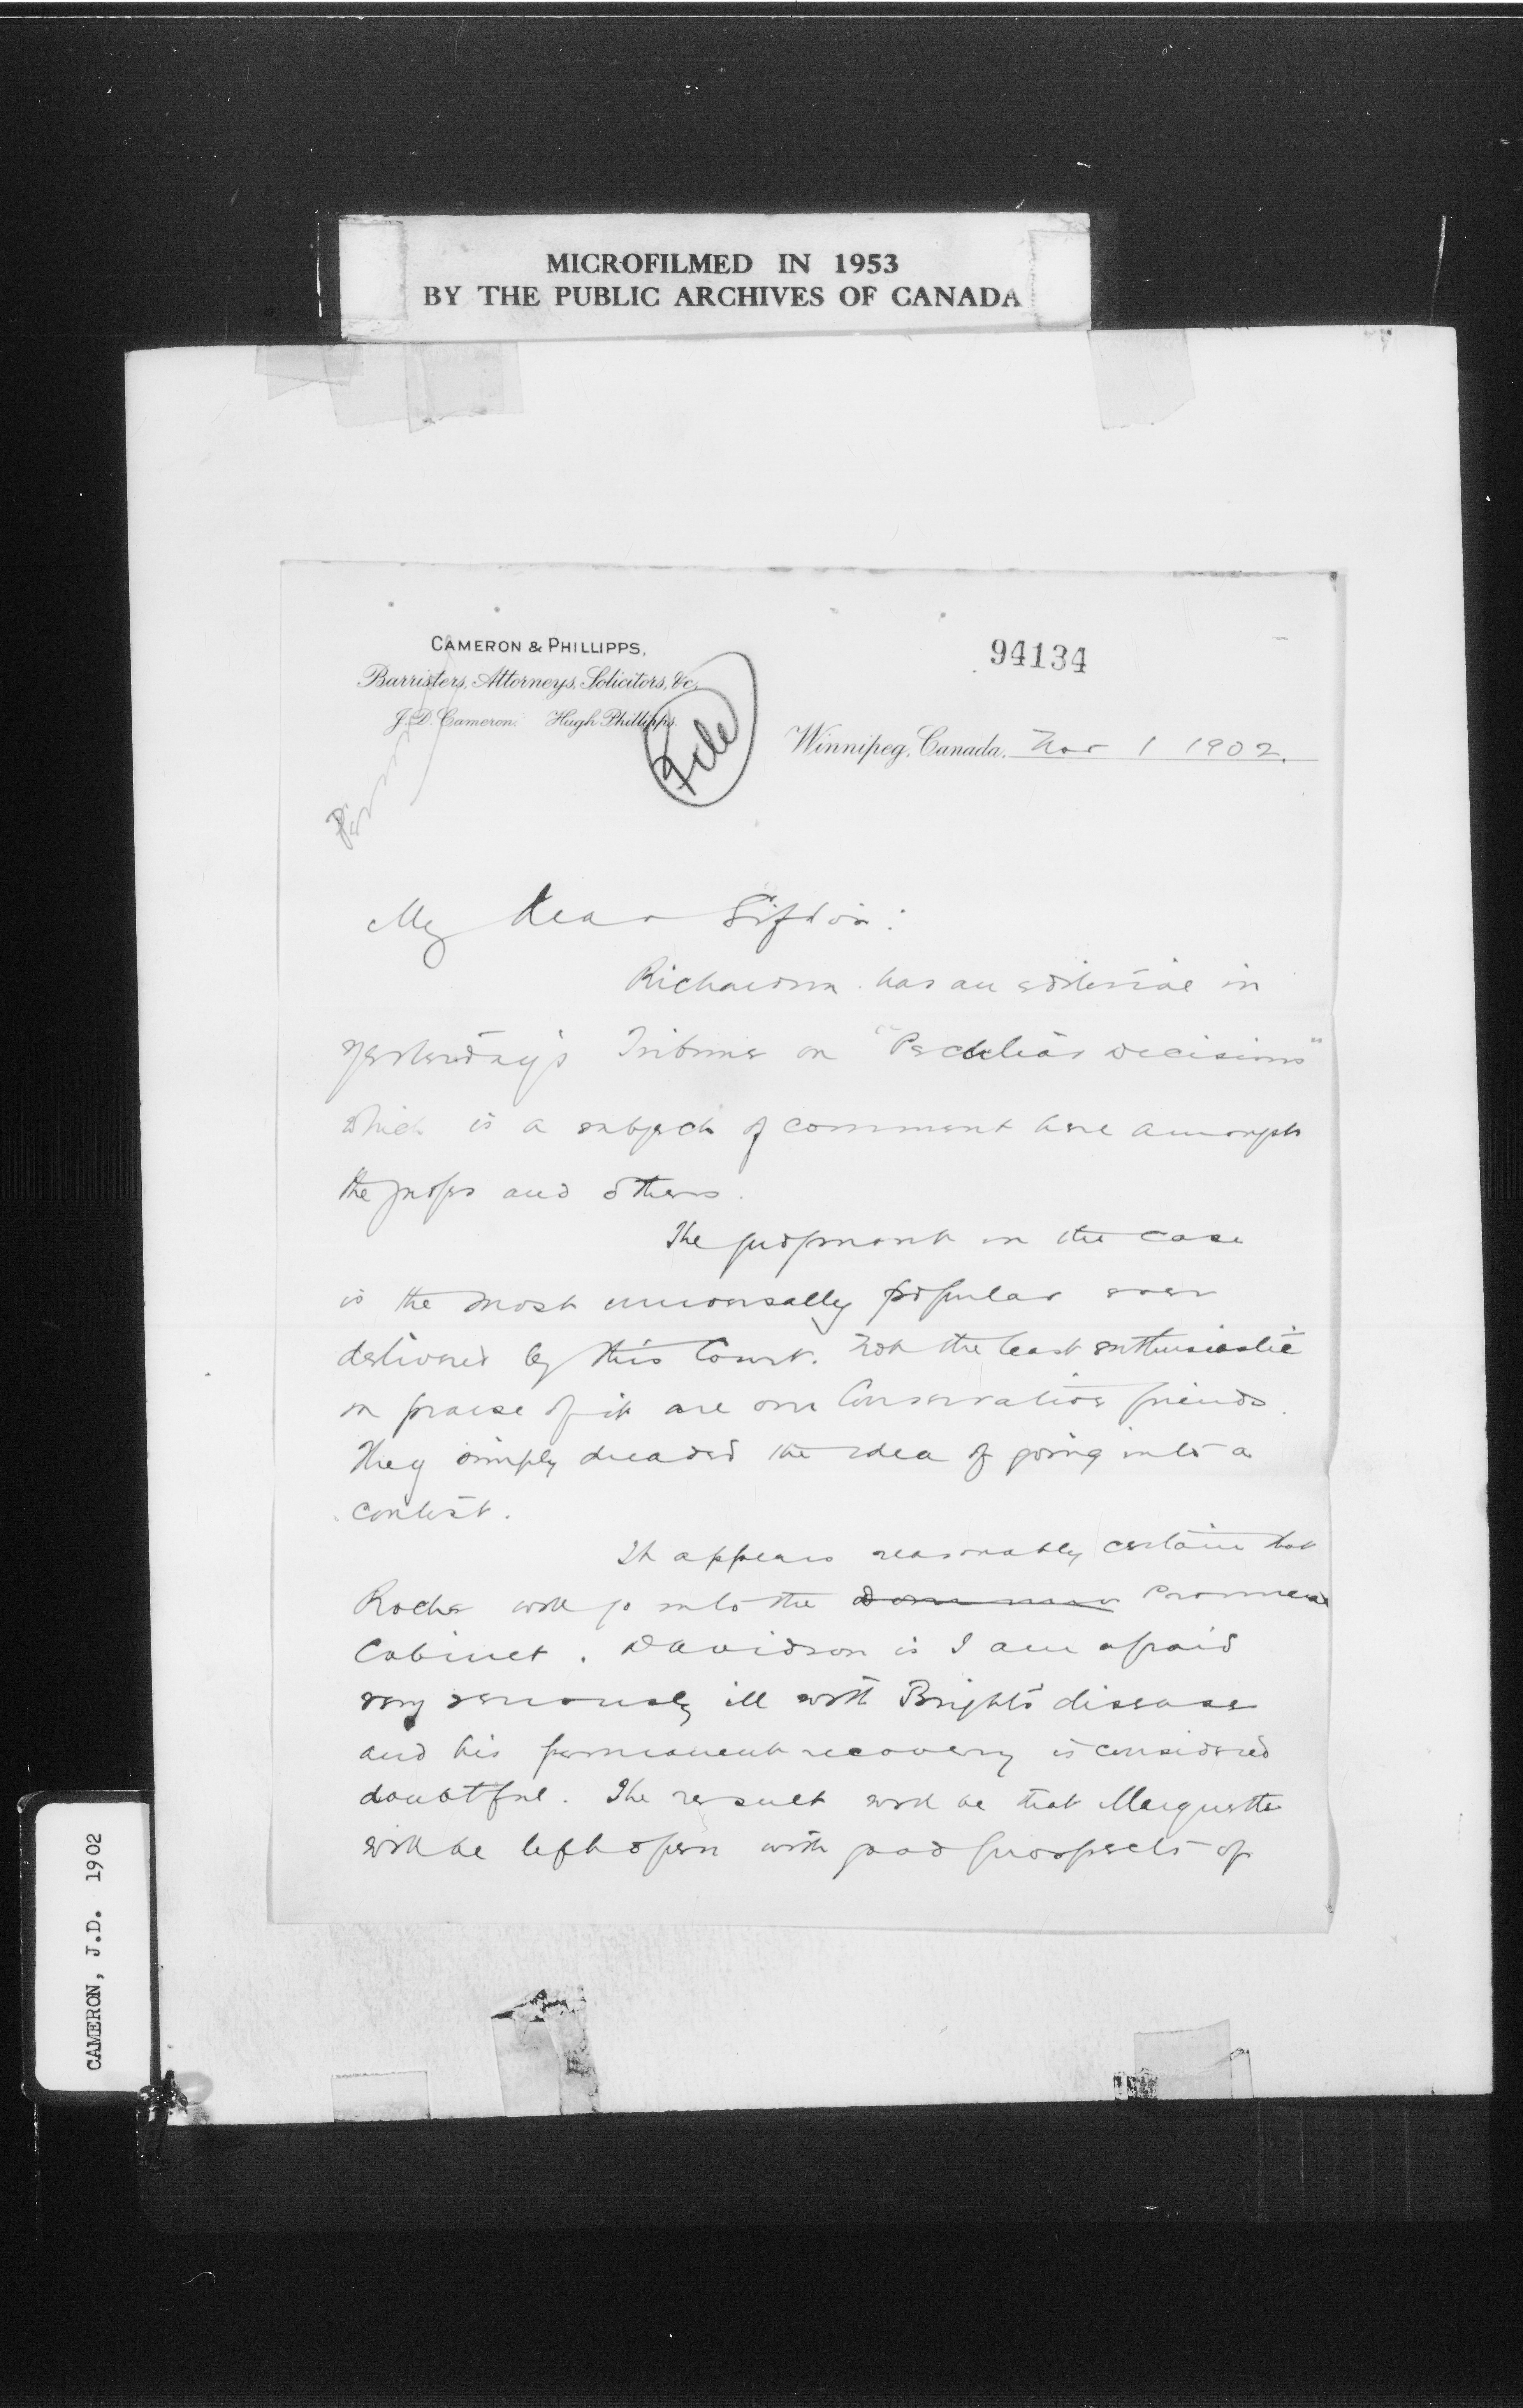 MICROFILMED IN 1953
BY THE PUBLIC ARCHIVES OF CANADA
CAMERON & PHILLIPPS,
Barristers, Attorneys, Solicitors, &c.
J. D. Cameron. Hugh Phillipps.
94134
File
Winnipeg, Canada, Nov 1 1902.
My dear Sifton:
Richardson has an editorial in
yesterday's Tribune on "Peculiar Decisions"
which is a subject of comment here amongst
the judges and others.
The judgment in the case
is the most universally popular ever
delivered by this Court. Not the least enthusiastic
in praise of it are our Conservative friends.
They simply dreaded the idea of going into a
contest.
It appears reasonably certain that
Roche will go into the Dominion Provincial
Cabinet. Davidson is I am afraid
very seriously ill with Bright's disease
and his permanent recovery is considered
doubtful. The result will be that Marquette
will be left open with good prospects of
CAMERON, J.D. 1902